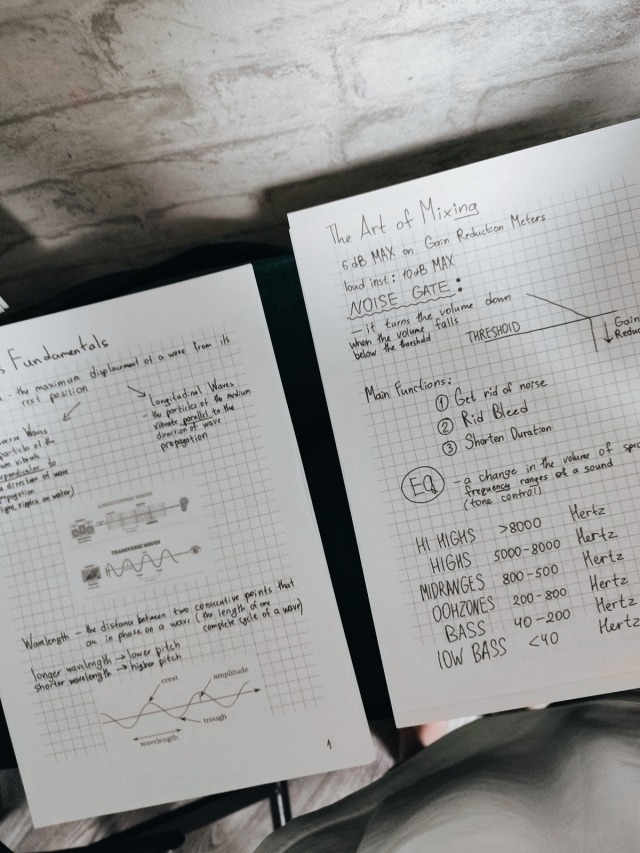 s Fundamentals
- the maximum displacement of a wave from its
rest position
verse Waves
particle of the
um vibrate
perpendicular to
direction of wave
propagation
light, ripples on water)
Longitudinal Waves
- the particles of the medium
vibrate parallel to the
direction of wave
propagation
LONGITUDINAL WAVES
TRANSVERSE WAVES
Wavelength - the distance between two consecutive points that
are in phase on a wave (the length of one
complete cycle of a wave)
longer wavelength → lower pitch
shorter wavelength → higher pitch
crest
amplitude
trough
wavelength
1
The Art of Mixing
6 dB MAX on Gain Reduction Meters
loud inst: 10dB MAX
NOISE GATE:
- it turns the volume down
when the volume falls
below the threshold
THRESHOLD
Gain
Reduc
Main Functions:
① Get rid of noise
② Rid Bleed
③ Shorten Duration
EQ - a change in the volume of spec
frequency ranges of a sound
(tone control)
HI HIGHS >8000 Hertz
HIGHS 5000-8000 Hertz
MIDRANGES 800-500 Hertz
OOHZONES 200-800 Hertz
BASS 40-200 Hertz
LOW BASS <40 Hertz